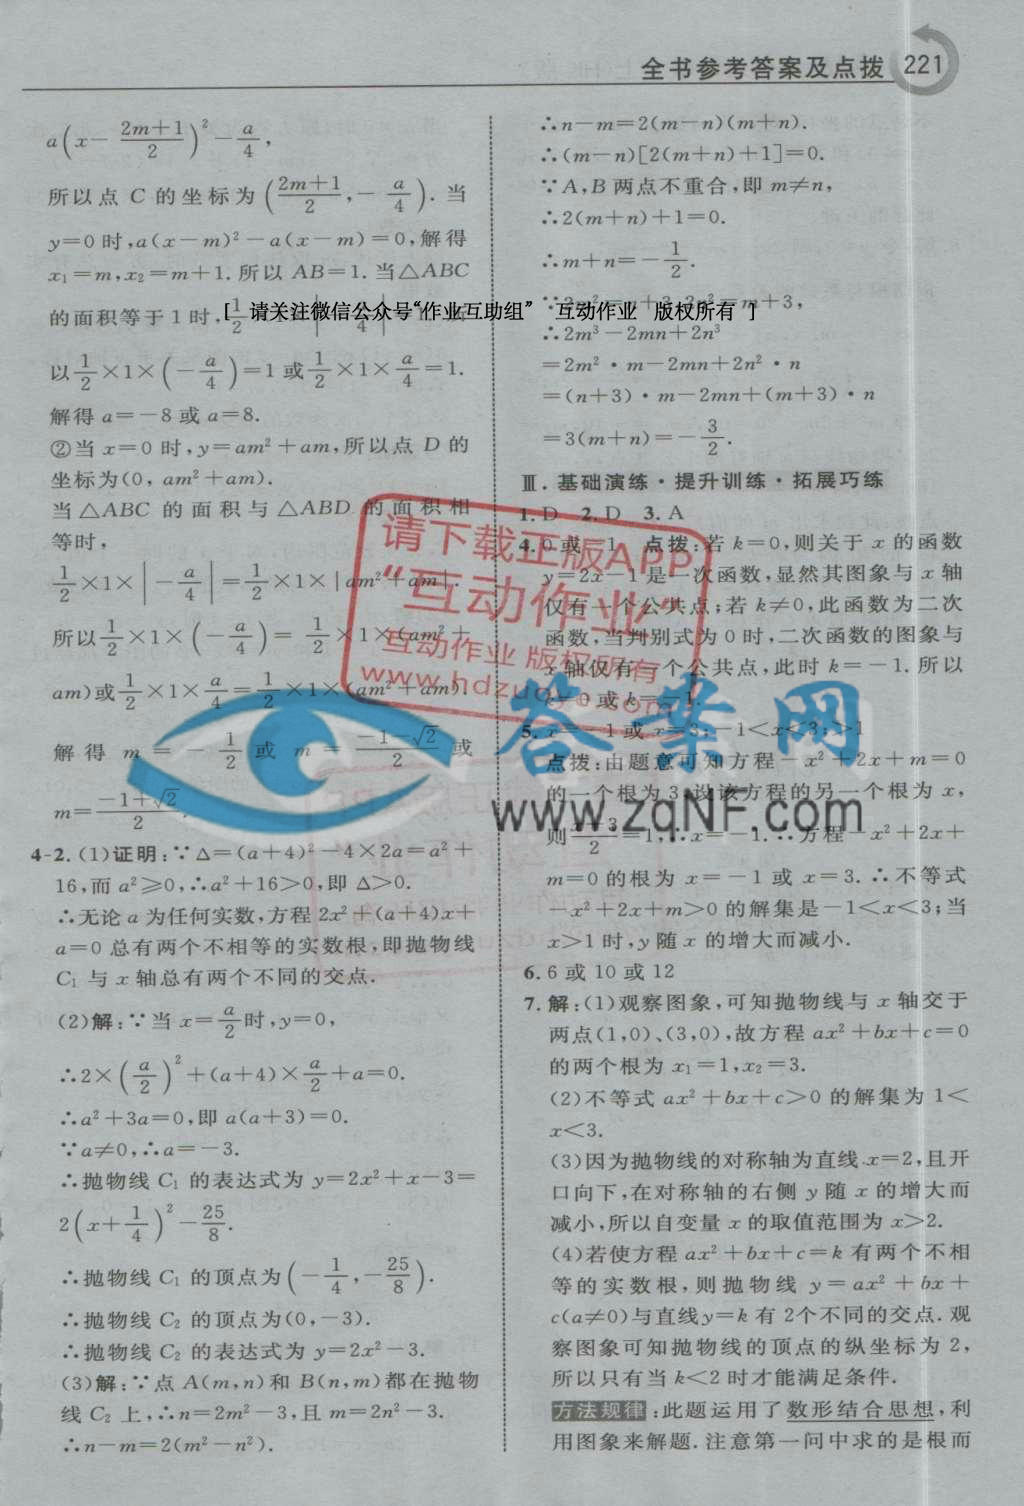 全书参考答案及点拨 221
a(x－(2m＋1)/2)²－a/4,
所以点 C 的坐标为((2m＋1)/2,－a/4). 当
y＝0 时,a(x－m)²－a(x－m)＝0,解得
x₁＝m,x₂＝m＋1. 所以 AB＝1. 当△ABC
的面积等于 1 时,1/2
以1/2×1×(－a/4)＝1 或1/2×1×a/4＝1.
解得 a＝－8 或 a＝8.
②当 x＝0 时,y＝am²＋am,所以点 D 的
坐标为(0, am²＋am).
当△ABC 的面积与△ABD 的面积相
等时,
1/2×1×|－a/4|＝1/2×1×|am²＋am|.
所以1/2×1×(－a/4)＝1/2×1×(am²＋
am)或1/2×1×a/4＝1/2×1×(am²＋am).
解得 m＝－1/2 或 m＝(－1－√2)/2 或
m＝(－1＋√2)/2.
4-2. (1)证明:∵Δ＝(a＋4)²－4×2a＝a²＋
16,而 a²≥0,∴a²＋16＞0,即 Δ＞0.
∴无论 a 为任何实数,方程 2x²＋(a＋4)x＋
a＝0 总有两个不相等的实数根,即抛物线
C₁ 与 x 轴总有两个不同的交点.
(2)解:∵当 x＝a/2时,y＝0,
∴2×(a/2)²＋(a＋4)×a/2＋a＝0.
∴a²＋3a＝0,即 a(a＋3)＝0.
∵a≠0,∴a＝－3.
∴抛物线 C₁ 的表达式为 y＝2x²＋x－3＝
2(x＋1/4)²－25/8.
∴抛物线 C₁ 的顶点为(－1/4,－25/8).
∴抛物线 C₂ 的顶点为(0,－3).
∴抛物线 C₂ 的表达式为 y＝2x²－3.
(3)解:∵点 A(m,n)和 B(n,m)都在抛物
线 C₂ 上,∴n＝2m²－3,且 m＝2n²－3.
∴n－m＝2(m²－n²).
∴n－m＝2(m－n)(m＋n).
∴(m－n)[2(m＋n)＋1]＝0.
∵A,B 两点不重合,即 m≠n,
∴2(m＋n)＋1＝0.
∴m＋n＝－1/2.
∵2m²＝n＋3,2n²＝m＋3,
∴2m³－2mn＋2n³
＝2m²·m－2mn＋2n²·n
＝(n＋3)·m－2mn＋(m＋3)·n
＝3(m＋n)＝－3/2.
Ⅲ. 基础演练·提升训练·拓展巧练
1. D 2. D 3. A
4. 0 或－1 点拨:若 k＝0,则关于 x 的函数
y＝2x－1 是一次函数,显然其图象与 x 轴
仅有一个公共点;若 k≠0,此函数为二次
函数,当判别式为 0 时,二次函数的图象与
x 轴仅有一个公共点,此时 k＝－1. 所以
k＝0 或 k＝－1.
5. x＝－1 或 x＝3;－1＜x＜3;＞1
点拨:由题意可知方程－x²＋2x＋m＝0
的一个根为 3,设该方程的另一个根为 x,
则(x＋3)/2＝1,∴x＝－1.∴方程－x²＋2x＋
m＝0 的根为 x＝－1 或 x＝3.∴不等式
－x²＋2x＋m＞0 的解集是－1＜x＜3;当
x＞1 时,y 随 x 的增大而减小.
6. 6 或 10 或 12
7. 解:(1)观察图象,可知抛物线与 x 轴交于
两点(1,0)、(3,0),故方程 ax²＋bx＋c＝0
的两个根为 x₁＝1,x₂＝3.
(2)不等式 ax²＋bx＋c＞0 的解集为 1＜
x＜3.
(3)因为抛物线的对称轴为直线 x＝2,且开
口向下,在对称轴的右侧 y 随 x 的增大而
减小,所以自变量 x 的取值范围为 x＞2.
(4)若使方程 ax²＋bx＋c＝k 有两个不相
等的实数根,则抛物线 y＝ax²＋bx＋
c(a≠0)与直线 y＝k 有 2个不同的交点. 观
察图象可知抛物线的顶点的纵坐标为 2,
所以只有当 k＜2 时才能满足条件.
方法规律:此题运用了数形结合思想,利
用图象来解题. 注意第一问中求的是根而
[ 请关注微信公众号“作业互助组” 互动作业 版权所有 ]
请下载正版APP
“互动作业”
互动作业 版权所有
答案网
www.zqNF.com